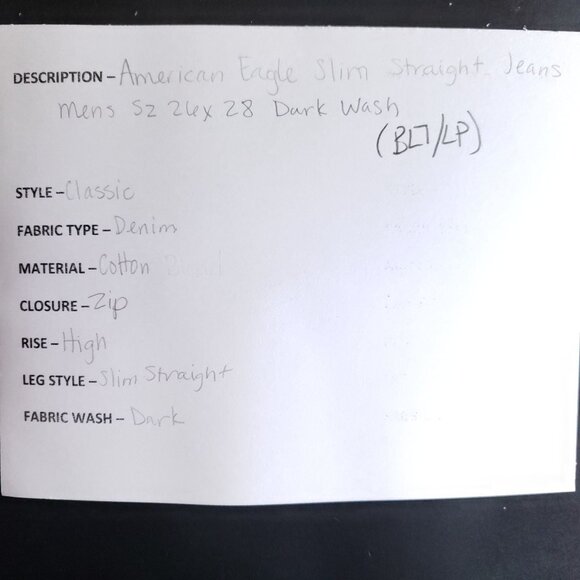 DESCRIPTION – American Eagle Slim Straight Jeans
Mens Sz 26x28 Dark Wash
(BL7/LP)
STYLE – Classic
FABRIC TYPE – Denim
MATERIAL – Cotton
CLOSURE – Zip
RISE – High
LEG STYLE – Slim Straight
FABRIC WASH – Dark